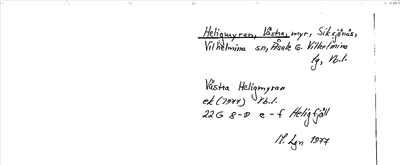 Heligmyran, Västra, myr, Siksjönäs,
Vilhelmina sn, Åsele o. Vilhelmina
lg, Vb.l.
Västra Heligmyran
ek (1977) Vb.l.
22G 8-9 e-f Heligfjäll
M. Lgn 1977